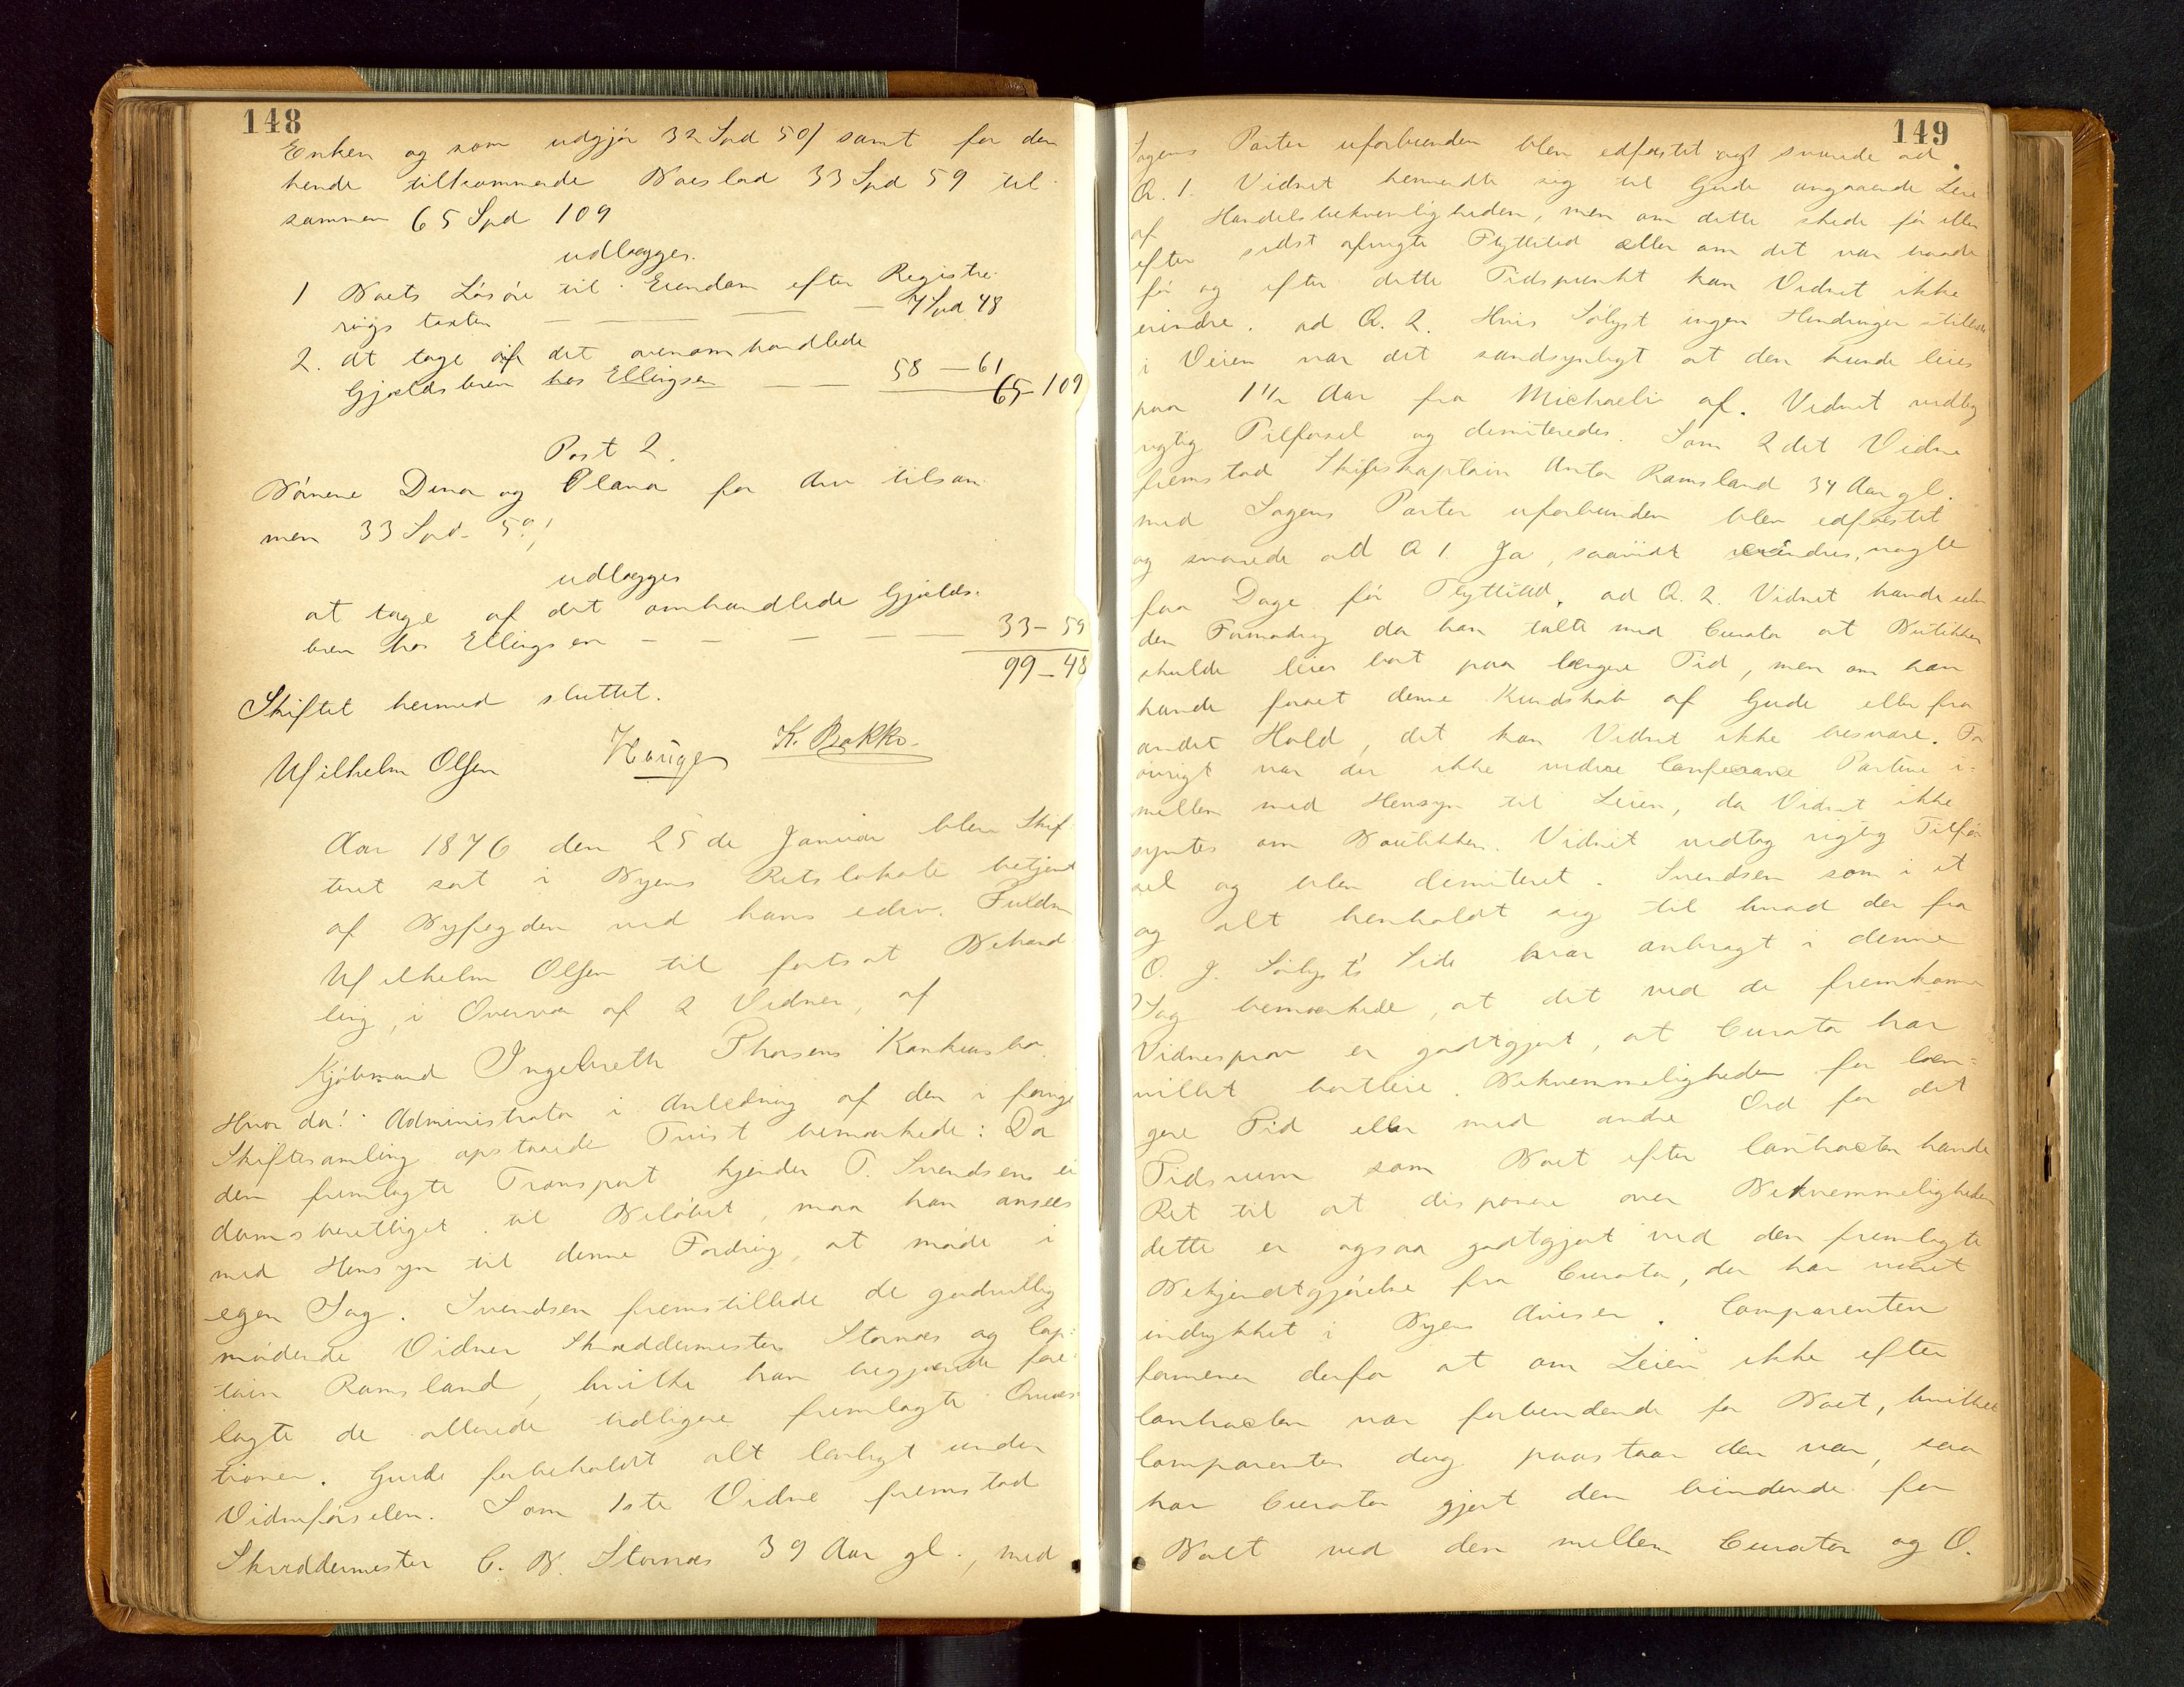 148
Enken og som udgjør 32 Spd 50/ samt for den
hende tilkommende Boeslod 33 Spd 59 til
sammen 65 Spd 109
udlægges.
1 Boets Løsøre til Eiendom efter Registre-
rings taxten — — — 7 Spd 48
2. at tage af det ovenomhandlede
Gjældsbrev hos Ellingsen — — 58 — 61
65-109
Post 2.
Børnene Dina og Olava for Arv tilsam
men 33 Spd. 59/
udlægges
at tage af det omhandlede Gjælds-
brev hos Ellingsen — — — — 33 — 59
99 — 48
Skiftet hermed sluttet.
Wilhelm Olsen Hauge K. Bakke
Aar 1876 den 25de Januar blev Skif
teret sat i Byens Retslokale betjent
af Byfogden ved hans edsv. Fuldm
Wilhelm Olsen til fortsat Behand
ling, i Overvær af 2 Vidner, af
Kjøbmand Ingebreth Thorsens Konkursbo.
Hvor da! Administrator i Anledning af den i forrige
Skiftesamling opstaaede Tvist bemærkede: Da
den fremlagte Transport kjender T. Svendsen ei
domsberettiget til Beløbet, maa han ansees
med Hensyn til denne Fordring, at møde i
egen Sag. Svendsen fremstillede de godvillig
mødende Vidner Skræddermester Stornæs og Cap-
tain Ramsland, hvilke han begjærede fore-
lagte de allerede tidligere fremlagte Qvæs-
tioner. Gude forbeholdt alt lovligt under
Vidneførselen. Som 1ste Vidne fremstod
Skræddermester C. B. Stornæs 39 Aar gl., med
149
Sagens Parter uforbunden blev edfæstet og svarede ad
Q. 1. Vidnet henvendte sig til Gude angaaende Leie
af Handelsbekvemligheden, men om dette skede før eller
efter sidst afvigte Flyttetid eller om det var baade
før og efter dette Tidspunkt kan Vidnet ikke
erindre. ad Q. 2. Hvis Sølyst ingen Hindringer stillede
i Veien var det sandsynligt at den kunde leies
paa 1½ Aar fra Michaeli af. Vidnet vedtog
rigtig Tilførsel og dimiteredes. Som 2det Vidne
fremstod Skibskaptain Anton Ramsland 34 Aar gl.
med Sagens Parter uforbunden blev edfæstet
og svarede ad Q 1. Ja, saavidt erindres, nogle
faa Dage før Flyttetid. ad Q. 2. Vidnet havde
den Formodning da han talte med Curator at Butikken
skulde leies bort paa længere Tid, men om han
havde faaet denne Kundskab af Gude eller fra
andet Hold, det kan Vidnet ikke besvare. For
øvrigt var der ikke videre Conferance Parterne i-
mellem med Hensyn til Leien, da Vidnet ikke
syntes om Boutikken. Vidnet vedtog rigtig Tilfør
sel og blev dimiteret. Svendsen som i et
og alt henholdt sig til hvad der fra
O. J. Sølyst's Side var anbragt i denne
Sag bemærkede, at det ved de fremkomne
Vidnesprov er godtgjort, at Curator har
villet bortleie Bekvemmeligheden for læn-
gere Tid eller med andre Ord for det
Tidsrum som Boet efter Contracten havde
Ret til at disponere over Bekvemmeligheden
dette er ogsaa godtgjort ved den fremlagte
Bekjendtgjørelse fra Curator, der har været
indrykket i Byens Aviser. Comparenten
formener derfor at om Leien ikke efter
Contracten var forbindende for Boet, hvilket
Comparenten dog paastaar den var, saa
har Curator gjort den bindende for
Boet ved den mellem Curator og O.